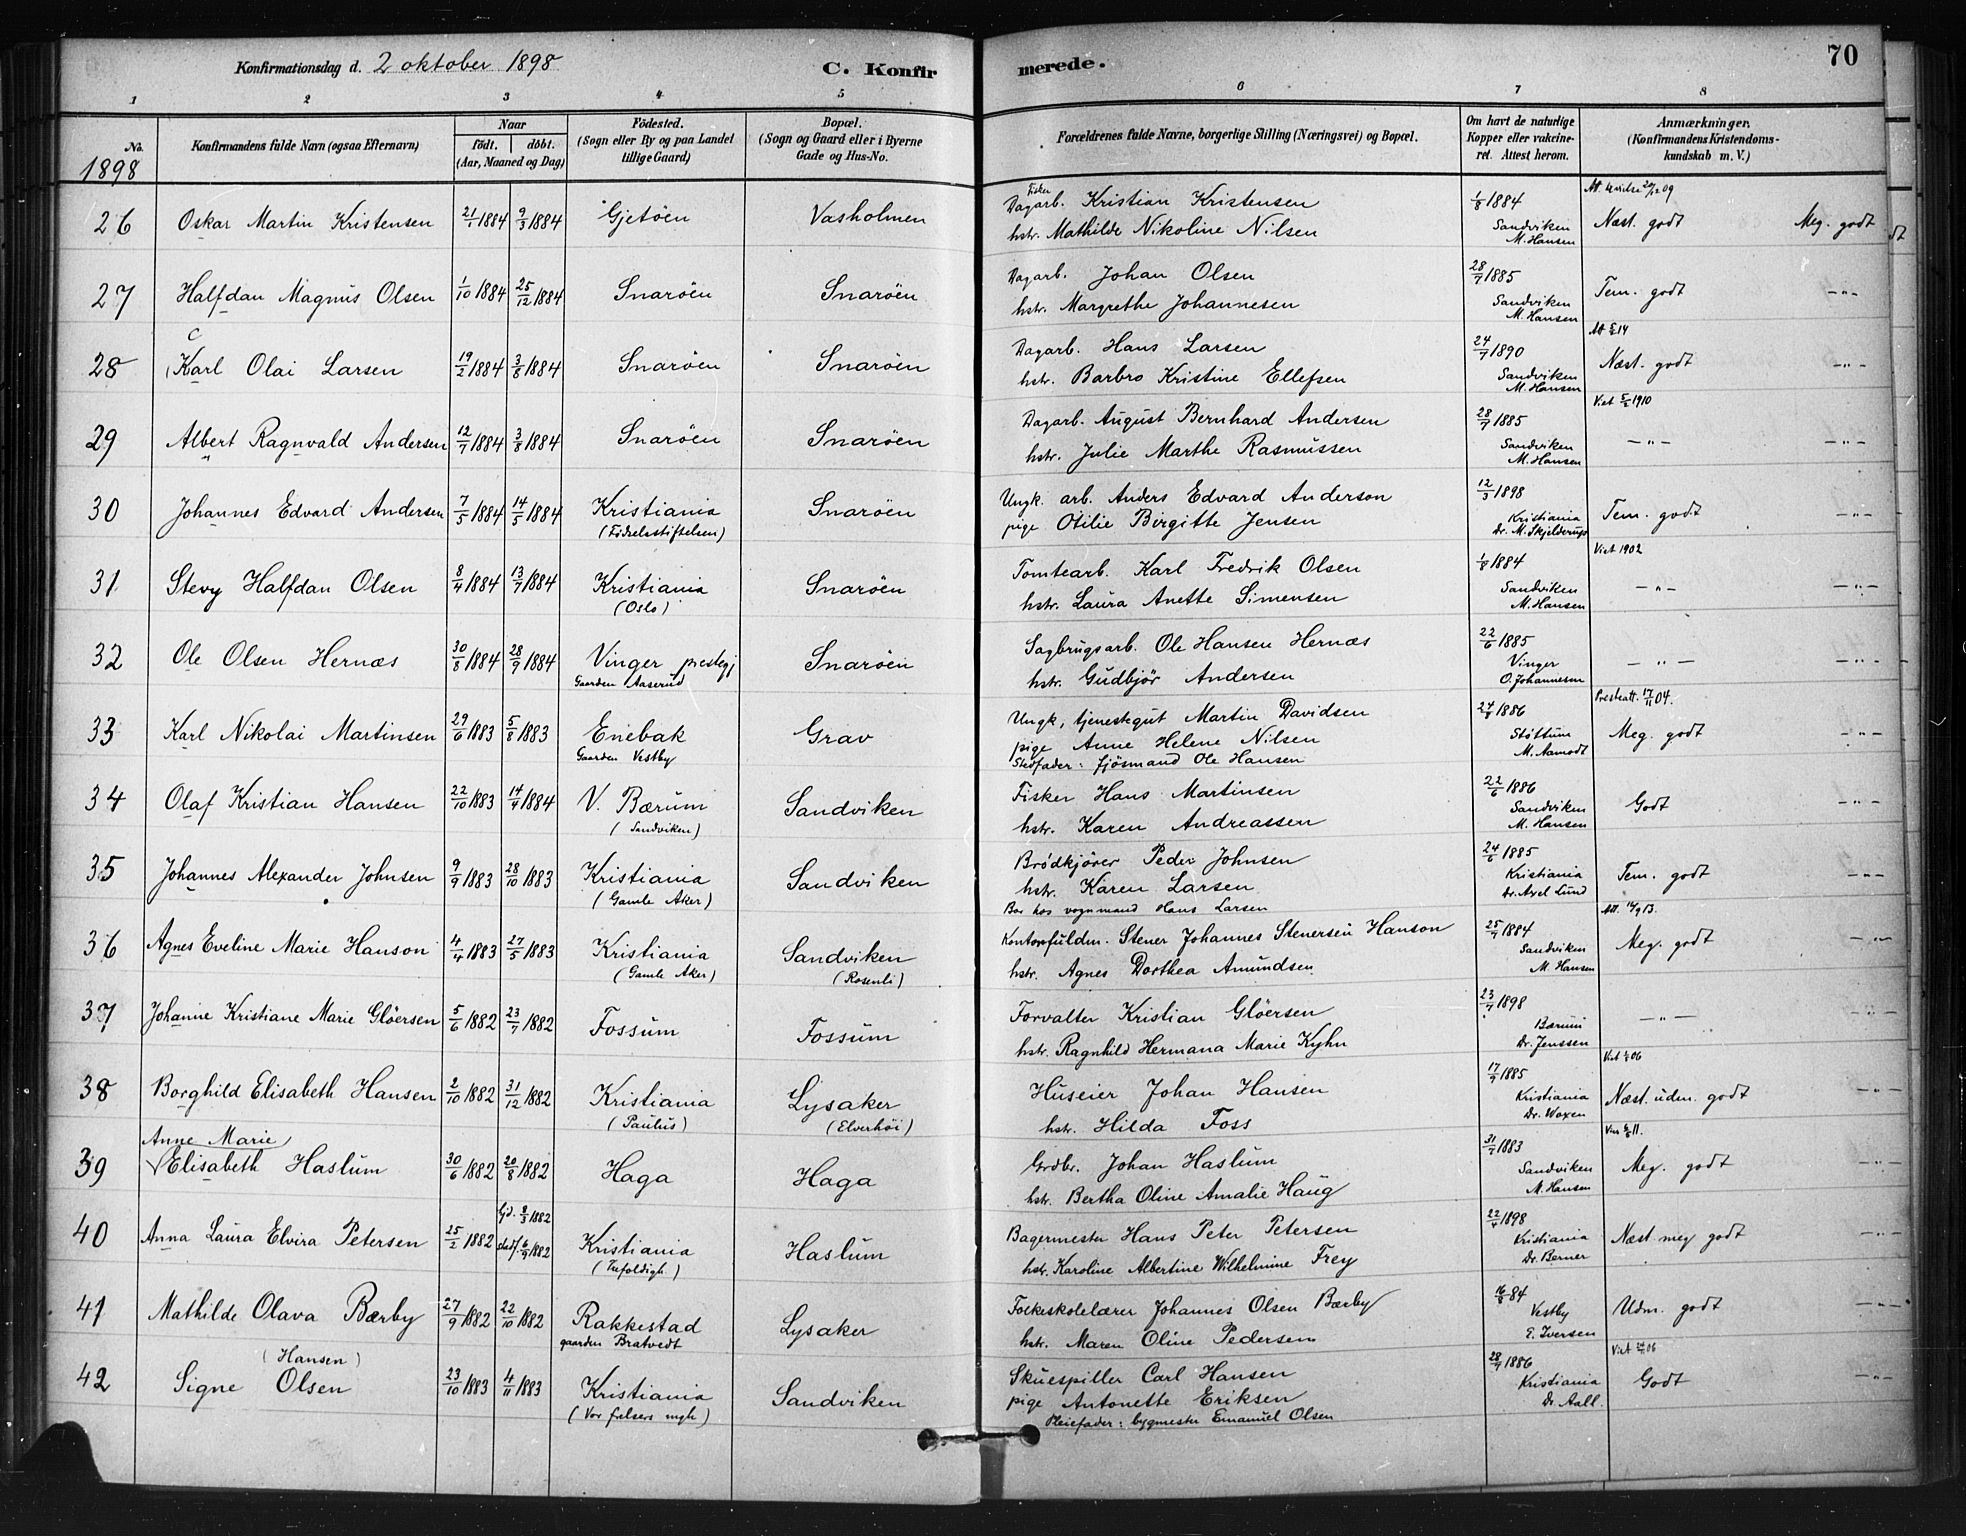 Konfirmationsdag d. 2 oktober 1898
C. Konfirmerede.
70
1 2 3 4 5 6 7 8
No. Konfirmandens fulde Navn (ogsaa Efternavn)
Naar født. døbt. (Aar, Maaned og Dag)
Fødested. (Sogn eller By og paa Landet tillige Gaard)
Bopæl. (Sogn og Gaard eller i Byerne Gade og Hus-No.
Forældrenes fulde Navne, borgerlige Stilling (Næringsvei) og Bopæl.
Om havt de naturlige Kopper eller vakcineret. Attest herom.
Anmærkninger. (Konfirmandens Kristendomskundskab m. V.)
1898
26 Oskar Martin Kristensen 21/1 1884 9/3 1884 Gjetöen Vasholmen
Fisker
Dagarb. Kristian Kristensen 1/8 1884
hstr. Mathilde Nikoline Nilsen Sandviken M. Hansen Næst. godt Meg. godt
27 Halfdan Magnus Olsen 1/10 1884 25/12 1884 Snaröen Snaröen
Dagarb. Johan Olsen 28/7 1885
hstr. Margrethe Johannesen Sandviken M. Hansen Tem. godt -"-
C
28 Karl Olai Larsen 19/2 1884 3/8 1884 Snaröen Snaröen
Dagarb. Hans Larsen 24/7 1890
hstr. Barbro Kristine Ellefsen Sandviken M. Hansen Næst. godt -"-
29 Albert Ragnvald Andersen 12/7 1884 3/8 1884 Snaröen Snaröen
Dagarb. August Bernhard Andersen 28/7 1885
hstr. Julie Marthe Rasmussen Sandviken M. Hansen -"- -"-
30 Johannes Edvard Andersen 7/5 1884 14/5 1884 Kristiania (Födselsstiftelsen) Snaröen
Ungk. arb. Anders Edvard Anderson 12/3 1898
pige Otilie Birgitte Jensen Kristiania Dr. M. Skjelderup Tem. godt -"-
Vict 1902
31 Stevy Halfdan Olsen 8/4 1884 13/7 1884 Kristiania (Oslo) Snaröen
Tomtearb. Karl Fredrik Olsen 1/8 1884
hstr. Laura Anette Simensen Sandviken M. Hansen -"- -"-
32 Ole Olsen Hernæs 30/8 1884 28/9 1884 Vinger prestegj Gaarden Aaserud Snaröen
Sagbrugsarb. Ole Hansen Hernæs 22/6 1885
hstr. Gudbjör Andersen Vinger O. Johannesen -"- -"-
Presteatt. 17/11 04.
33 Karl Nikolai Martinsen 29/6 1883 5/8 1883 Enebak Gaarden Vestby Grav
Ungk, tjenestegut Martin Davidsen 24/8 1886
pige Anne Helene Nilsen Støttum M. Aamodt Meg. godt -"-
Stedfader: fjösmand Ole Hansen
34 Olaf Kristian Hansen 22/10 1883 14/4 1884 V. Bærum (Sandviken) Sandviken
Fisker Hans Martinsen 22/6 1886
hstr. Karen Andreassen Sandviken M. Hansen Godt -"-
35 Johannes Alexander Johnsen 9/9 1883 28/10 1883 Kristiania (Gamle Aker) Sandviken
Brödkjörer Peder Johnsen 24/6 1885
hstr. Karen Larsen Kristiania Dr. Axel Lund Tem. godt -"-
Bor hos vognmand Hans Larsen
36 Agnes Eveline Marie Hanson 4/4 1883 27/5 1883 Kristiania (Gamle Aker) Sandviken (Rosenli)
Kontorfuldm. Stener Johannes Stenersen Hanson 25/7 1884
hstr. Agnes Dorthea Amundsen Sandviken M. Hansen Meg. godt -"-
37 Johanne Kristiane Marie Glöersen 5/6 1882 23/7 1882 Fossum Fossum
Forvalter Kristian Glöersen 23/4 1898
hstr. Ragnhild Hermana Marie Kyhn Bærum Dr. Jenssen -"- -"-
38 Borghild Elisabeth Hansen 2/10 1882 31/12 1882 Kristiania (Paulus) Lysaker (Elverhöi)
Huseier Johan Hansen 17/9 1885
hstr. Hilda Foss Kristiania Dr. Woxen Næst. udm. godt -"-
Anne Marie
39 Elisabeth Haslum 30/6 1882 20/8 1882 Haga Haga
Grdbr. Johan Haslum 31/7 1883
hstr. Bertha Oline Amalie Haug Sandviken M. Hansen Meg. godt -"-
40 Anna Laura Elvira Petersen 25/2 1882 Gjd. 8/3 1882 stadf. 6/9 1882 Kristiania (Trefoldigh.) Haslum
Bagermester Hans Peter Petersen 22/4 1898
hstr. Karoline Albertine Wilhelmine Frey Kristiania Dr. Berner Næst meg godt -"-
41 Mathilde Olava Bærby 27/9 1882 22/10 1882 Rakkestad gaarden Bratvedt Lysaker
Folkeskolelærer Johannes Olsen Bærby 16/8 84
hstr. Maren Oline Pedersen Vestby E. Iversen Udm. godt -"-
(Hansen)
42 Signe Olsen 23/10 1883 4/11 1883 Kristiania (Vor frelsers mgh) Sandviken
Skuespiller Carl Hansen 28/7 1886
pige Antonette Eriksen Kristiania Dr. Aall. Godt -"-
Pleiefader: bygmester Emanuel Olsen